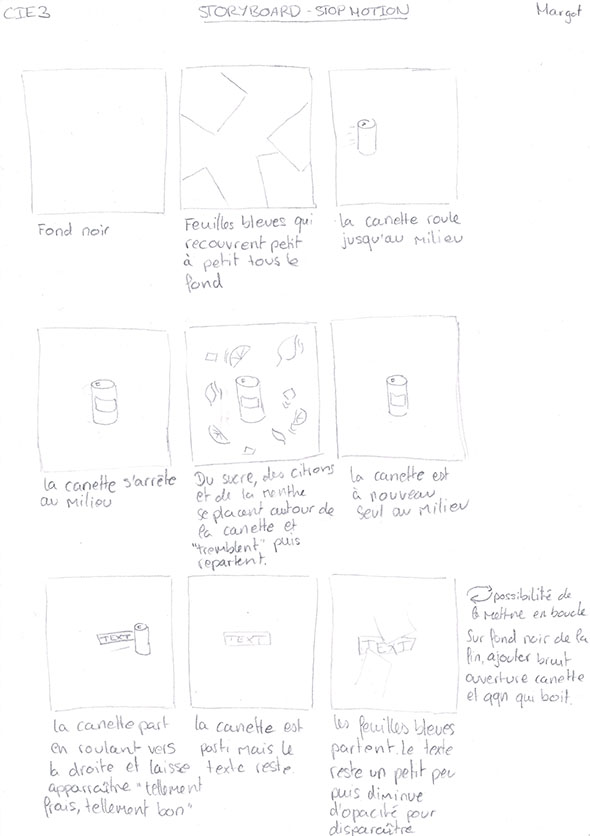 CIE3
STORYBOARD - STOP MOTION
Margot
Fond noir
Feuilles bleues qui
recouvrent petit
à petit tous le
fond
la canette roule
jusqu'au milieu
la canette s'arrête
au milieu
Du sucre, des citrons
et de la menthe
se placent autour de
la canette et
"tremblent" puis
repartent.
la canette est
à nouveau
seul au milieu
TEXT
la canette part
en roulant vers
la droite et laisse
apparraître "tellement
frais, tellement bon"
TEXT
la canette est
parti mais le
texte reste.
TEXT
les feuilles bleues
partent. le texte
reste un petit peu
puis diminue
d'opacité pour
disparaître
possibilité de
le mettre en boucle
Sur fond noir de la
fin, ajouter bruit
ouverture canette
et qqn qui boit.